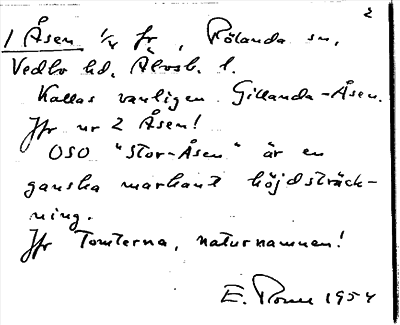 2
1 Åsen 1/4 fr, Rölanda sn,
Vedbo hd, Älvsb. l.
Kallas vanligen Gillanda-Åsen.
Jfr nr 2 Åsen!
OSO "Stor-Åsen" är en
ganska markant höjdsträck-
ning.
Jfr Tomterna, naturnamnen!
E. 1954